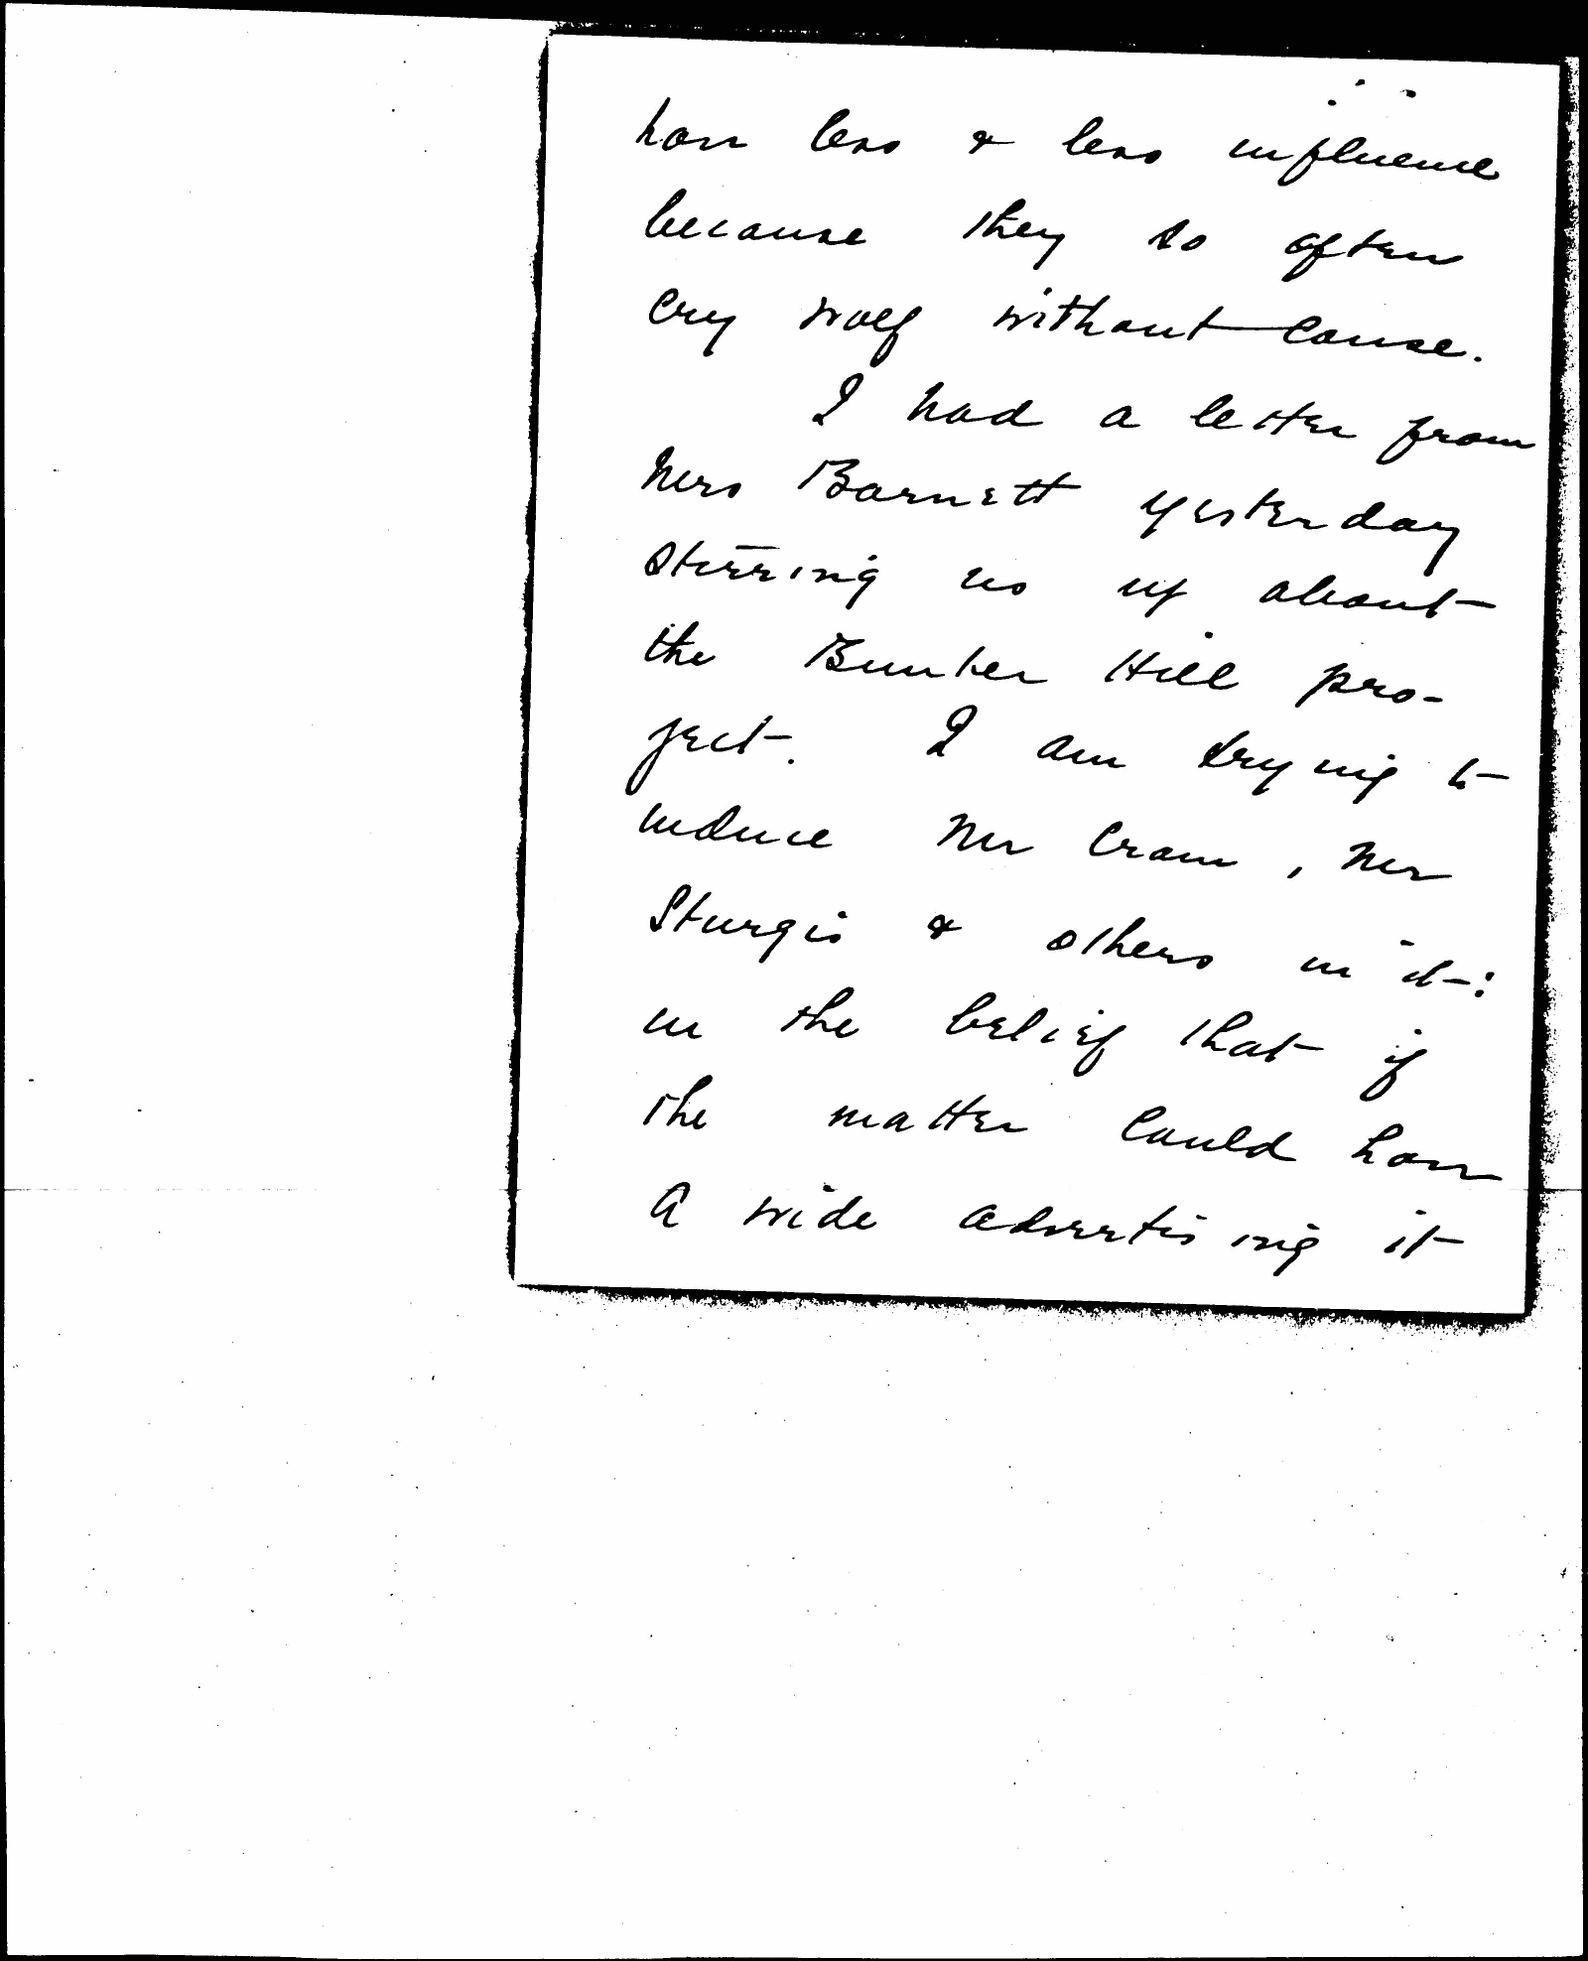 have less & less influence
because they so often
cry wolf without cause.
I had a letter from
Mrs Barnett yesterday
stirring us up about
the Bunker Hill pro-
ject. I am trying to
induce Mr Cram, Mr
Sturgis & others in it:
in the belief that if
the matter could have
a wide advertising it